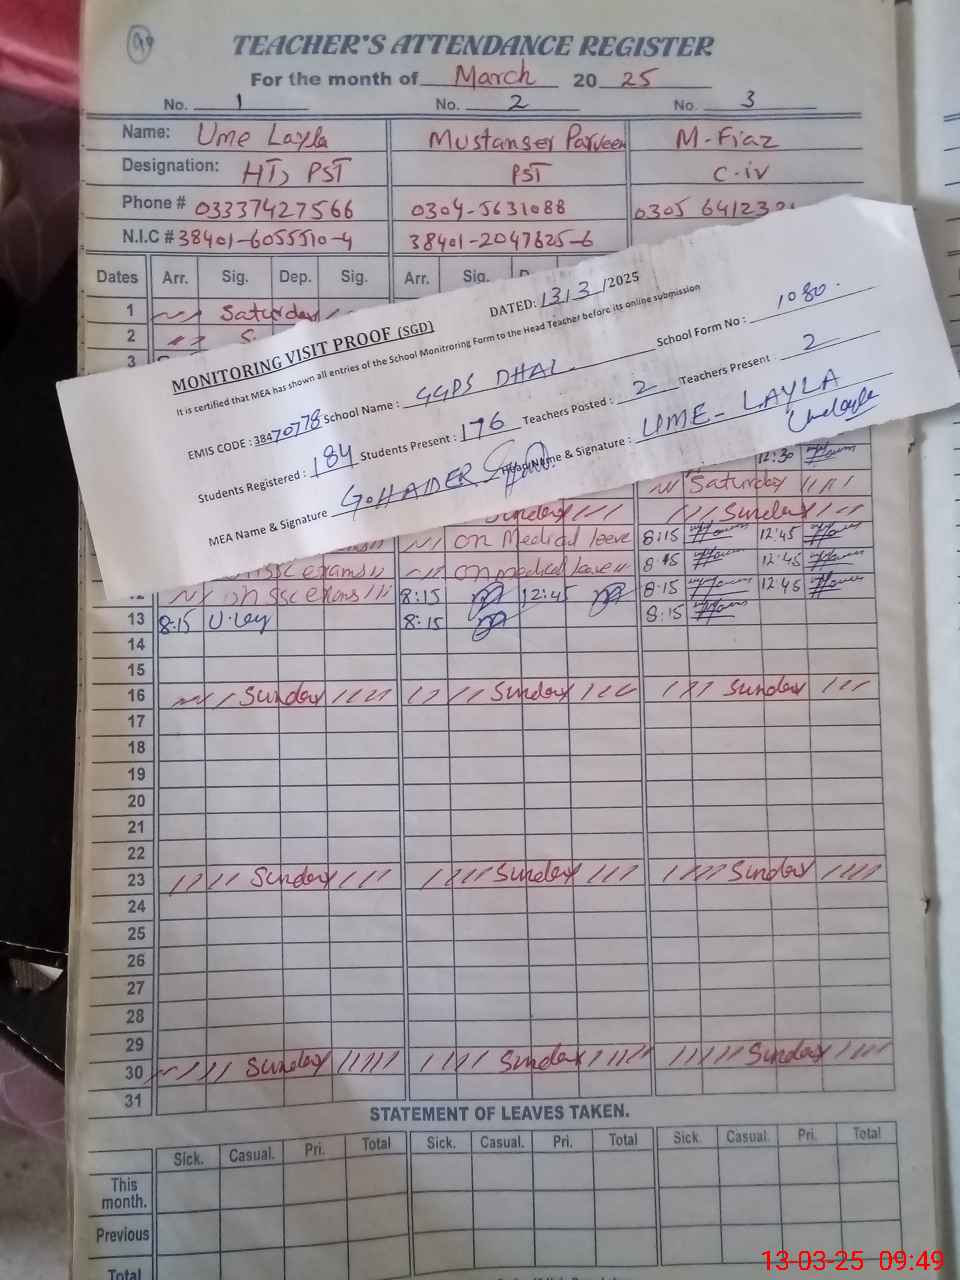 99
TEACHER'S ATTENDANCE REGISTER
For the month of March 20 25
No. 1 No. 2 No. 3
Name: Ume Layla Mustanser Parveen M-Fiaz
Designation: HT, PST PST C-iv
Phone # 03337427566 0304-5631088 0305 64123
N.I.C # 38401-6055510-4 38401-2047625-6
Dates Arr. Sig. Dep. Sig. Arr. Sig.
1 Saturday
2 S
3
MONITORING VISIT PROOF (SGD) DATED: 13/3/2025
It is certified that MEA has shown all entries of the School Monitroring Form to the Head Teacher before its online submission
EMIS CODE : 38470778 School Name : GGPS DHAL School Form No : 1080.
Students Registered : 184 Students Present : 176 Teachers Posted : 2 Teachers Present : 2
MEA Name & Signature G.HAIDER Head Name & Signature : UME-LAYLA
12:30
Saturday
Sunday Sunday
on Medical leave 8:15 12:45
ssc exams on medical leave 8:15 12:45
12 on ssc exams 8:15 12:45 8:15 12:45
13 8:15 U.ley 8:15 8:15
14
15
16 Sunday Sunday Sunday
17
18
19
20
21
22
23 Sunday Sunday Sunday
24
25
26
27
28
29
30 Sunday Sunday Sunday
31
STATEMENT OF LEAVES TAKEN.
Sick. Casual. Pri. Total Sick. Casual. Pri. Total Sick. Casual. Pri. Total
This month.
Previous
Total
13-03-25 09:49